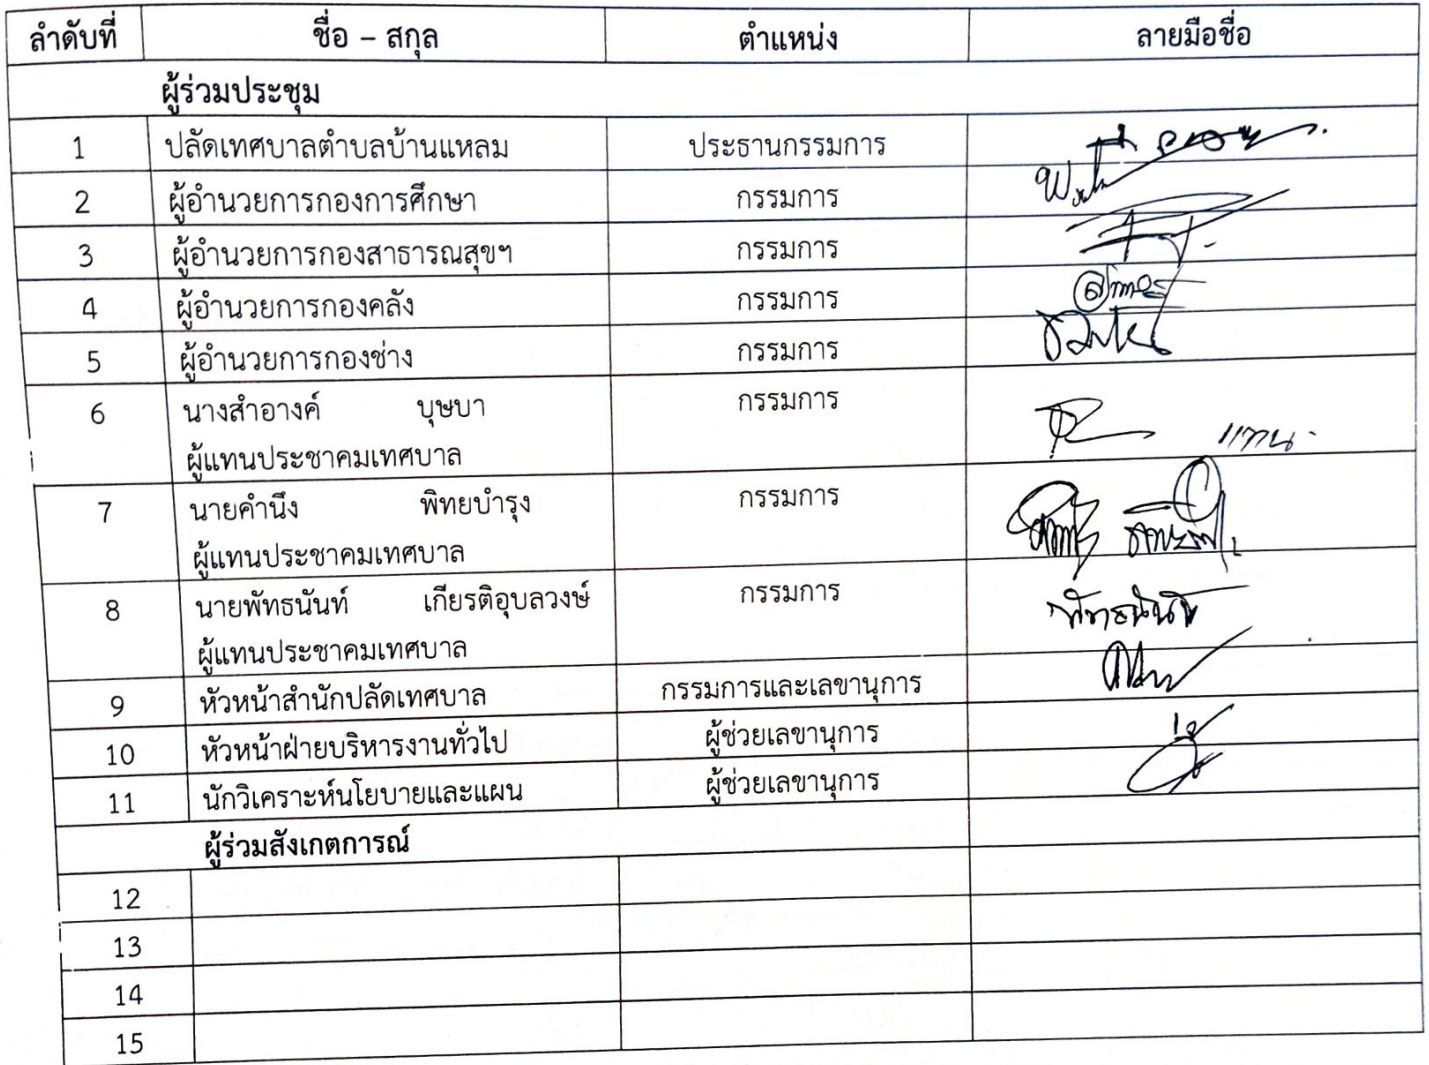 ลำดับที่ ชื่อ – สกุล ตำแหน่ง ลายมือชื่อ
ผู้ร่วมประชุม
1 ปลัดเทศบาลตำบลบ้านแหลม ประธานกรรมการ
2 ผู้อำนวยการกองการศึกษา กรรมการ
3 ผู้อำนวยการกองสาธารณสุขฯ กรรมการ
4 ผู้อำนวยการกองคลัง กรรมการ
5 ผู้อำนวยการกองช่าง กรรมการ
6 นางสำอางค์ บุษบา กรรมการ
แทน
ผู้แทนประชาคมเทศบาล
7 นายคำนึง พิทยบำรุง กรรมการ
ผู้แทนประชาคมเทศบาล
8 นายพัทธนันท์ เกียรติอุบลวงษ์ กรรมการ พัทธนันท์
ผู้แทนประชาคมเทศบาล
9 หัวหน้าสำนักปลัดเทศบาล กรรมการและเลขานุการ
10 หัวหน้าฝ่ายบริหารงานทั่วไป ผู้ช่วยเลขานุการ
11 นักวิเคราะห์นโยบายและแผน ผู้ช่วยเลขานุการ
ผู้ร่วมสังเกตการณ์
12
13
14
15